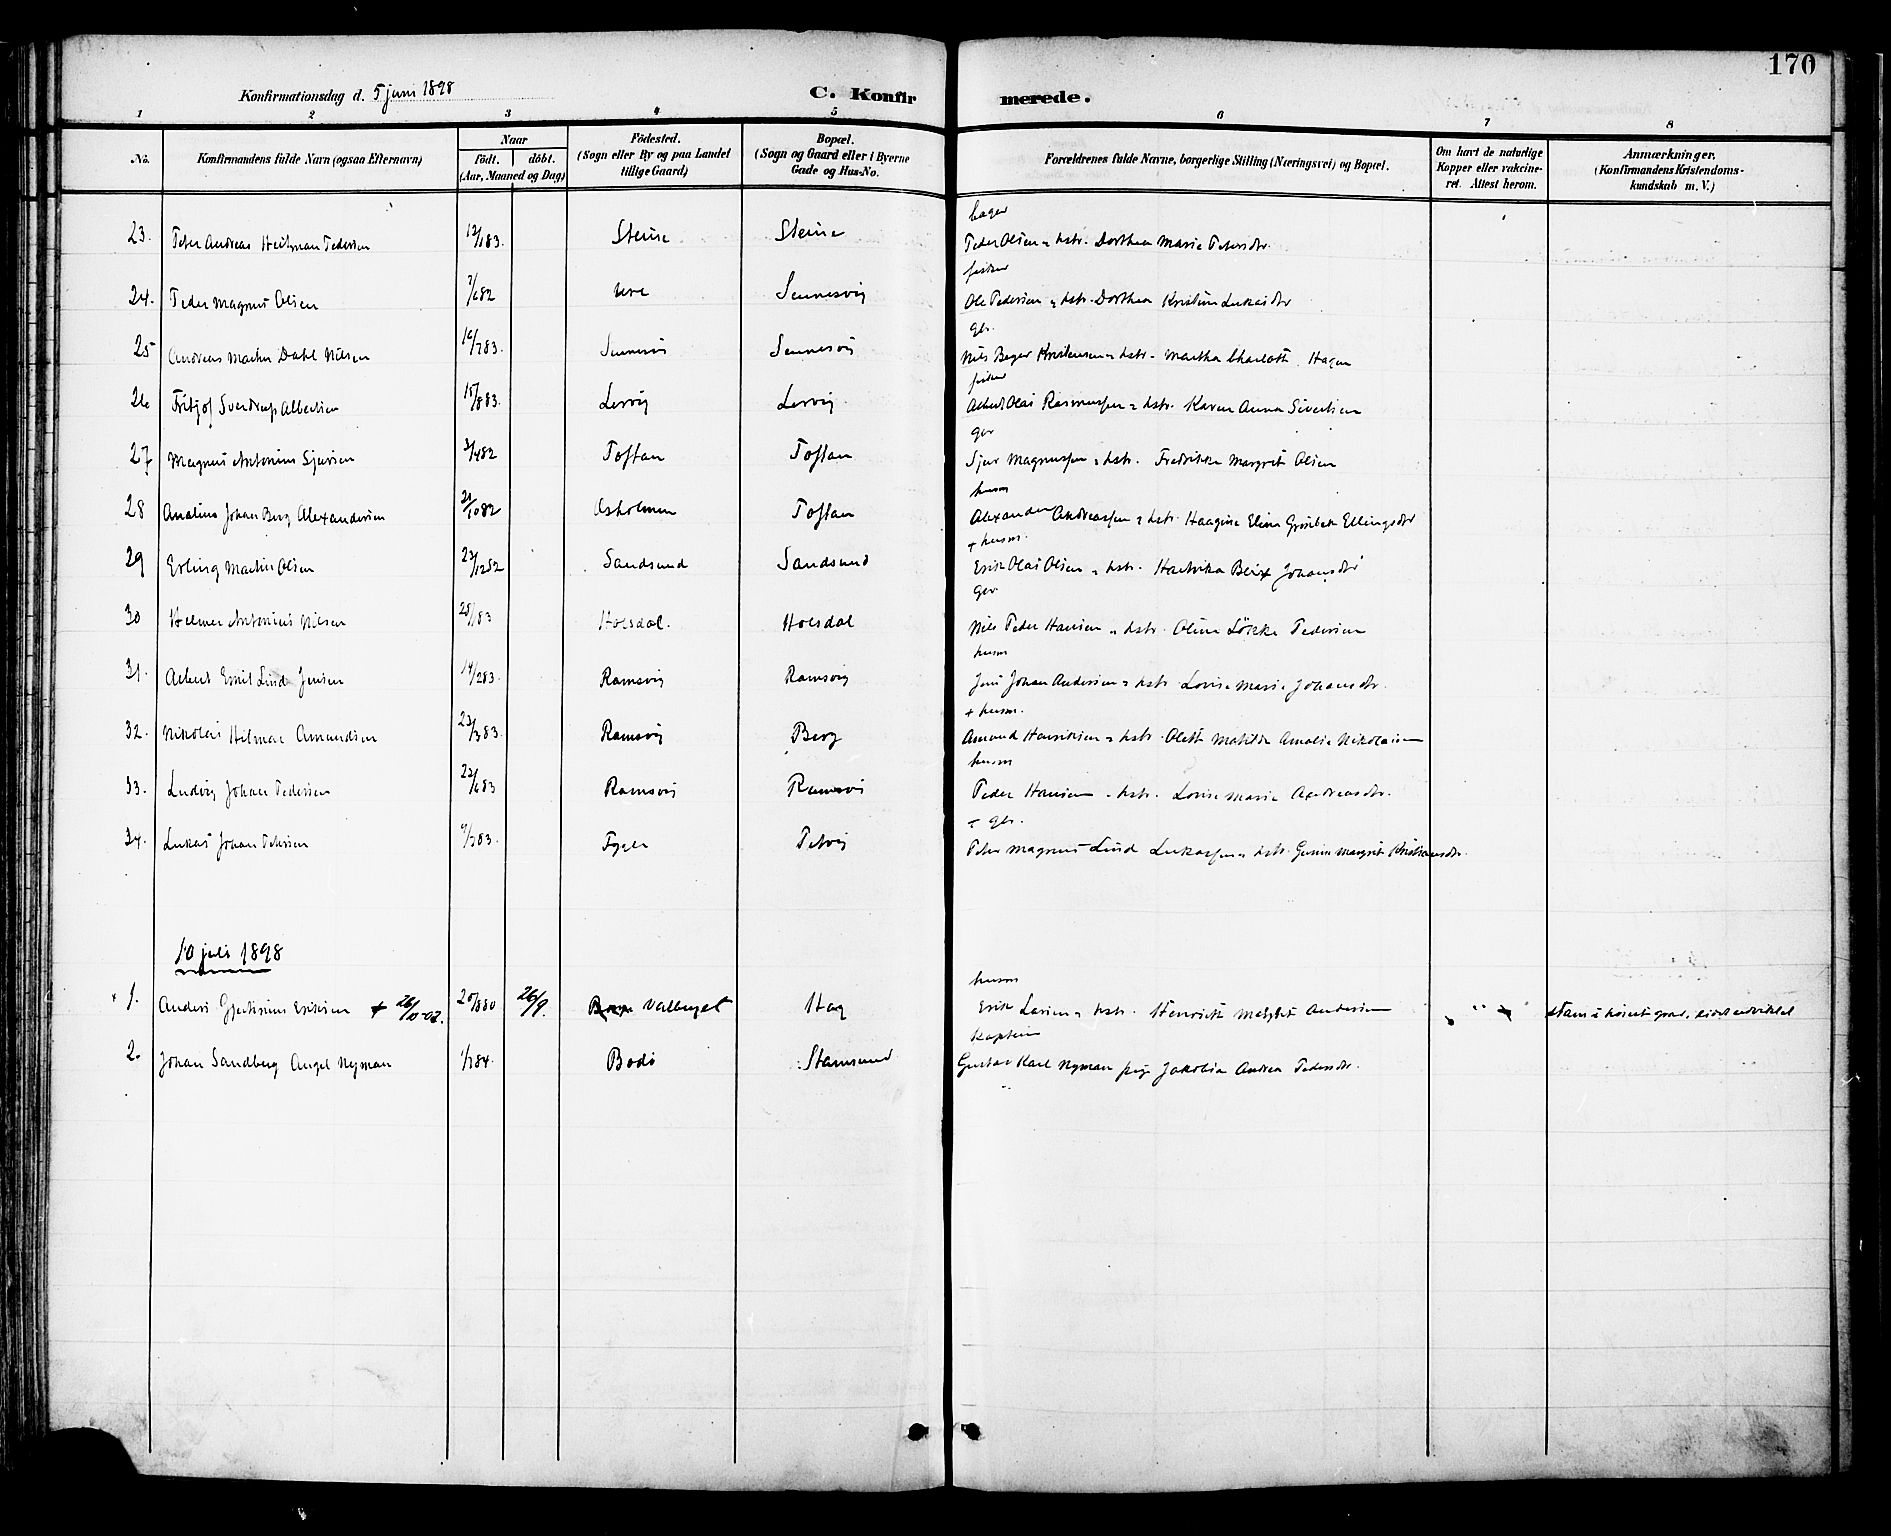 170
Konfirmationsdag d. 5 juni 1898 C. Konfirmerede.
1 2 3 4 5 6 7 8
No. Konfirmandens fulde Navn (ogsaa Efternavn) Naar födt. döbt. (Aar, Maaned og Dag) Födested. (Sogn eller By og paa Landet tillige Gaard) Bopæl. (Sogn og Gaard eller i Byerne Gade og Hus-No. Forældrenes fulde Navne, borgerlige Stilling (Næringsvei) og Bopæl. Om havt de naturlige Kopper eller vakcineret. Attest herom. Anmærkninger. (Konfirmandens Kristendomskundskab m. V.)
bager
23. Peter Andreas Heitman Pedersen 12/183. Steine Steine Peder Olsen & hstr. Dorthea Marie Petersdtr.
fisker
24. Peder Magnus Olsen 7/682 Ure Sennesvig Ole Pedersen & hstr. Dorthea Kristine Lukasdtr
gbr.
25 Andreas Martin Dahl Nilsen 783. Sennesvig Sennesvig Nils Beyer Kristensen & hstr. Martha Charlotte Hagen
fisker
26 Fritjof Sverdrup Albertsen 15/883. Lervig Lervig Albert Olai Rasmussen & hstr. Karen Anna Sivertsen
gbr
27 Magnus Antonius Sjursen 3/482 Toftan Toftan Sjur Magnussen & hstr. Fredrikke Margrete Olsen
husm
28 Analius Johan Berg Alexandersen 21/1082 Axholmen Toftan Alexander Andreassen & hstr. Haagine Eline Grönbek Ellingsdtr
+ husm.
29 Erling Martin Olsen 23/1282 Sandsund Sandsund Erik Olai Olsen & hstr. Hartvika Beix Johansdtr
gbr
30 Helmer Antonius Nilsen 28/183 Holsdal. Holsdal Nils Peder Hansen & hstr. Oline Lökke Pedersen
husm
31. Albert Emil Lind Jensen 14/283. Ramsvig Ramsvig Jens Johan Andersen & hstr. Lovise Marie Johansdtr.
+ husm.
32. Nikolai Hilmar Amundsen 23/383. Ramsvig Berg Amund Henriksen & hstr. Olette Matilde Amalie Nikolaisen
husm
33. Ludvig Johan Pedersen 22/683 Ramsvig Ramsvig Peder Hansen & hstr. Lovise Marie Andreasdtr.
+ gbr.
34. Lukas Johan Petersen 9/783. Fygle Petvig Peter Magnus Lind Lukassen & hstr. Gurine Margrete Kristiansdtr.
10 juli 1898
husm
1. Anders Gjertinius Eriksen + 26/10-02. 20/880 26/9. Valberget Hag Erik Larsen & hstr. Henriette Andersen stam i höiest grad,
kaptein
2. Johan Sandberg Angel Nyman 1/784. Bodö Stamsund Gustav Karl Nyman pige Jakobia Andrea Pedersdtr.